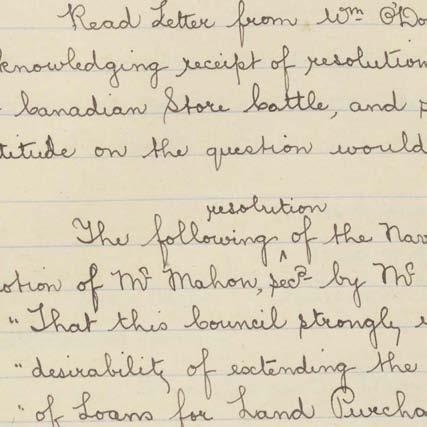 Read Letter from Wm O'Do
knowledging receipt of resolution
Canadian Store Cattle, and p
titude on the question would
resolution
The following ^ of the Nav
otion of Mr Mahon, secd by Mr
"That this Council strongly
"desirability of extending the
"of Loans for Land Purcha